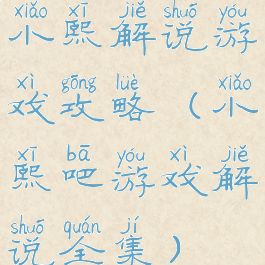 xiǎo xī jiě shuō yóu
小熙解说游
xì gōng lüè xiǎo
戏攻略（小
xī bā yóu xì jiě
熙吧游戏解
shuō quán jí
说全集）